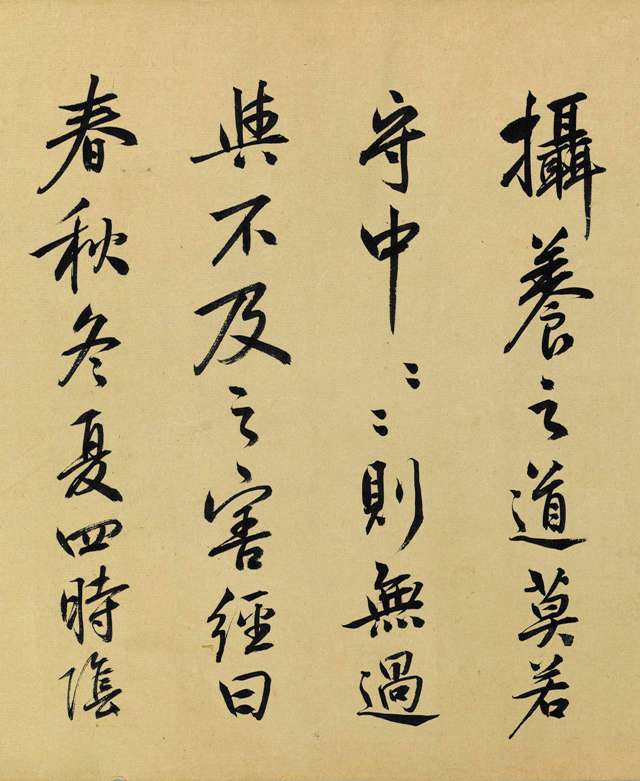 攝養之道莫若
守中〻〻則無過
與不及之害經曰
春秋冬夏四時陰